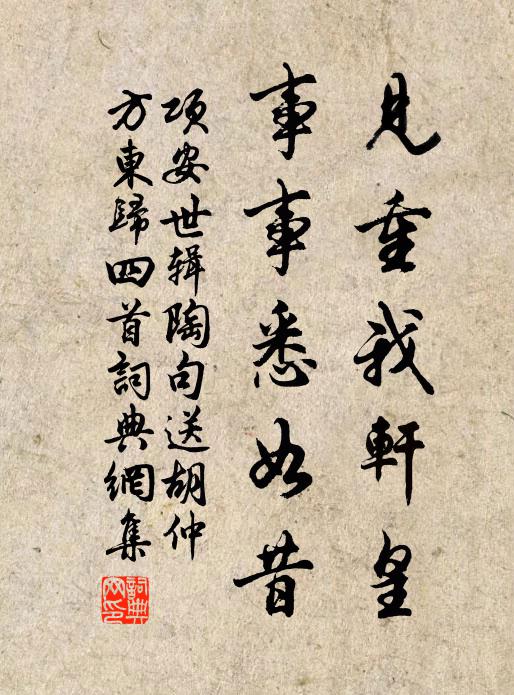 見重我軒皇
事事悉如昔
項安世辑陶句送胡仲
方東歸四首詞典網集
詞典網印